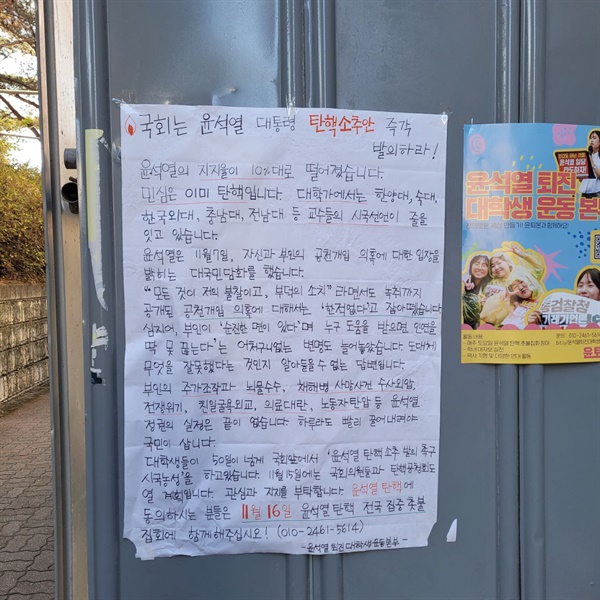 국회는 윤석열 대통령 탄핵소추안 즉각
발의하라!
윤석열의 지지율이 10%대로 떨어졌습니다.
민심은 이미 탄핵입니다. 대학가에서는 한양대, 숙대,
한국외대, 충남대, 전남대 등 교수들의 시국선언이 줄을
잇고 있습니다.
윤석열은 11월7일, 자신과 부인의 공천개입 의혹에 대한 입장을
밝히는 대국민담화를 했습니다.
"모든 것이 저의 불찰이고, 부덕의 소치" 라면서도 녹취까지
공개된 공천개입 의혹에 대해서는 '한적없다'고 잡아뗐습니다
심지어, 부인이 '순진한 면이 있다'며 누구 도움을 받으면 인연을
딱 못 끊는다'는 어처구니없는 변명도 늘어놓았습니다. 도대체
무엇을 잘못했다는 것인지 알아들을 수 없는 답변입니다.
부인의 주가조작과 뇌물수수, 채해병 사망사건 수사외압,
전쟁위기, 친일굴욕외교, 의료대란, 노동자탄압 등 윤석열
정권의 실정은 끝이 없습니다. 하루라도 빨리 끌어내려야
국민이 삽니다.
대학생들이 50일이 넘게 국회앞에서 '윤석열 탄핵소추 발의 촉구
시국농성'을 하고있습니다. 11월 15일에는 국회의원들과 탄핵공청회도
열 계획입니다. 관심과 지지를 부탁합니다. 윤석열 탄핵에
동의하시는 분들은 11월 16일 윤석열 탄핵 전국 집중 촛불
집회에 함께해주십시오! (010-2461-5614)
-윤석열 퇴진 대학생운동본부-
윤석열 퇴진
대학생 운동 본
활동 내용
문의: 010-2461-56